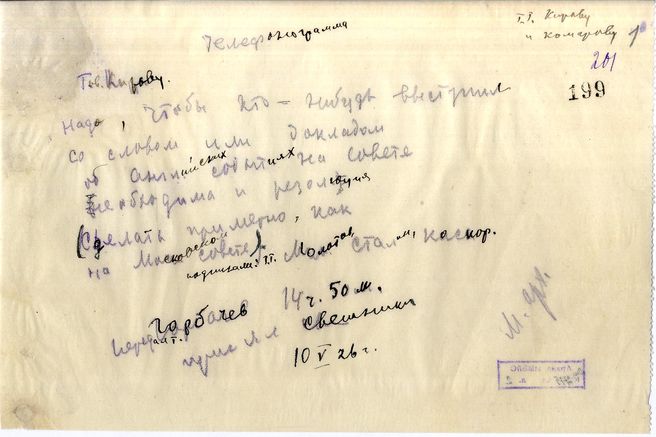 Т.Т. Кирову
и Комарову
201
199
Телефонограмма
Тов. Кирову.
Надо, чтобы кто-нибудь выступил
со словом или докладом
об английских событиях на совете
необходима и резолюция
(сделать примерно, как
на Московском совете)
подписали: т.т. Молотов, Сталин,
Горбачев 14 ч. 50 м.
принял Свешников
10 V 26 г.